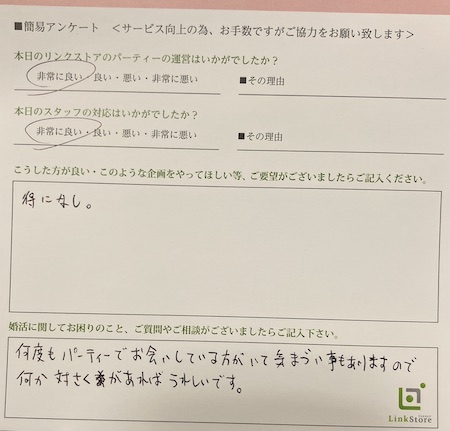 ■簡易アンケート <サービス向上の為、お手数ですがご協力をお願い致します>
本日のリンクストアのパーティーの運営はいかがでしたか?
非常に良い・良い・悪い・非常に悪い ■その理由
本日のスタッフの対応はいかがでしたか?
非常に良い・良い・悪い・非常に悪い ■その理由
こうした方が良い・このような企画をやってほしい等、ご要望がございましたらご記入ください。
特になし。
婚活に関してお困りのこと、ご質問やご相談がございましたらご記入下さい。
何度もパーティーでお会いしている方がいて気まづい事もありますので
何か対さくがあればうれしいです。
LinkStore